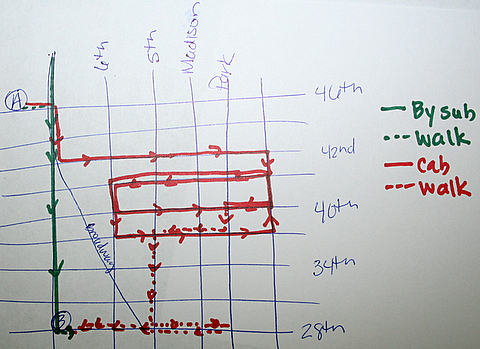 6th
5th
Madison
Park
A
46th
By sub
walk
42nd
cab
walk
40th
Broadway
34th
B
28th